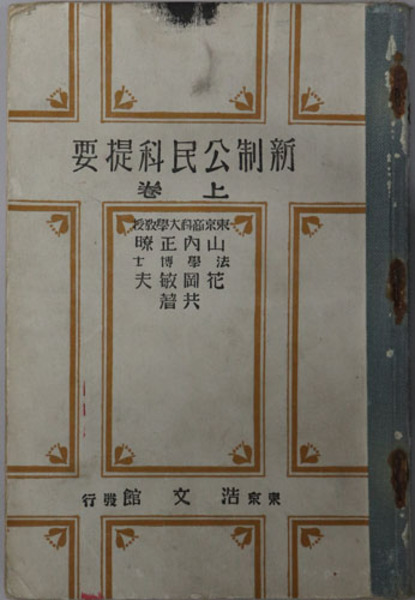 新制公民科提要
上卷
東京商科大學敎授
山内正瞭
法學博士
花岡敏夫
共著
東京 浩文館發行